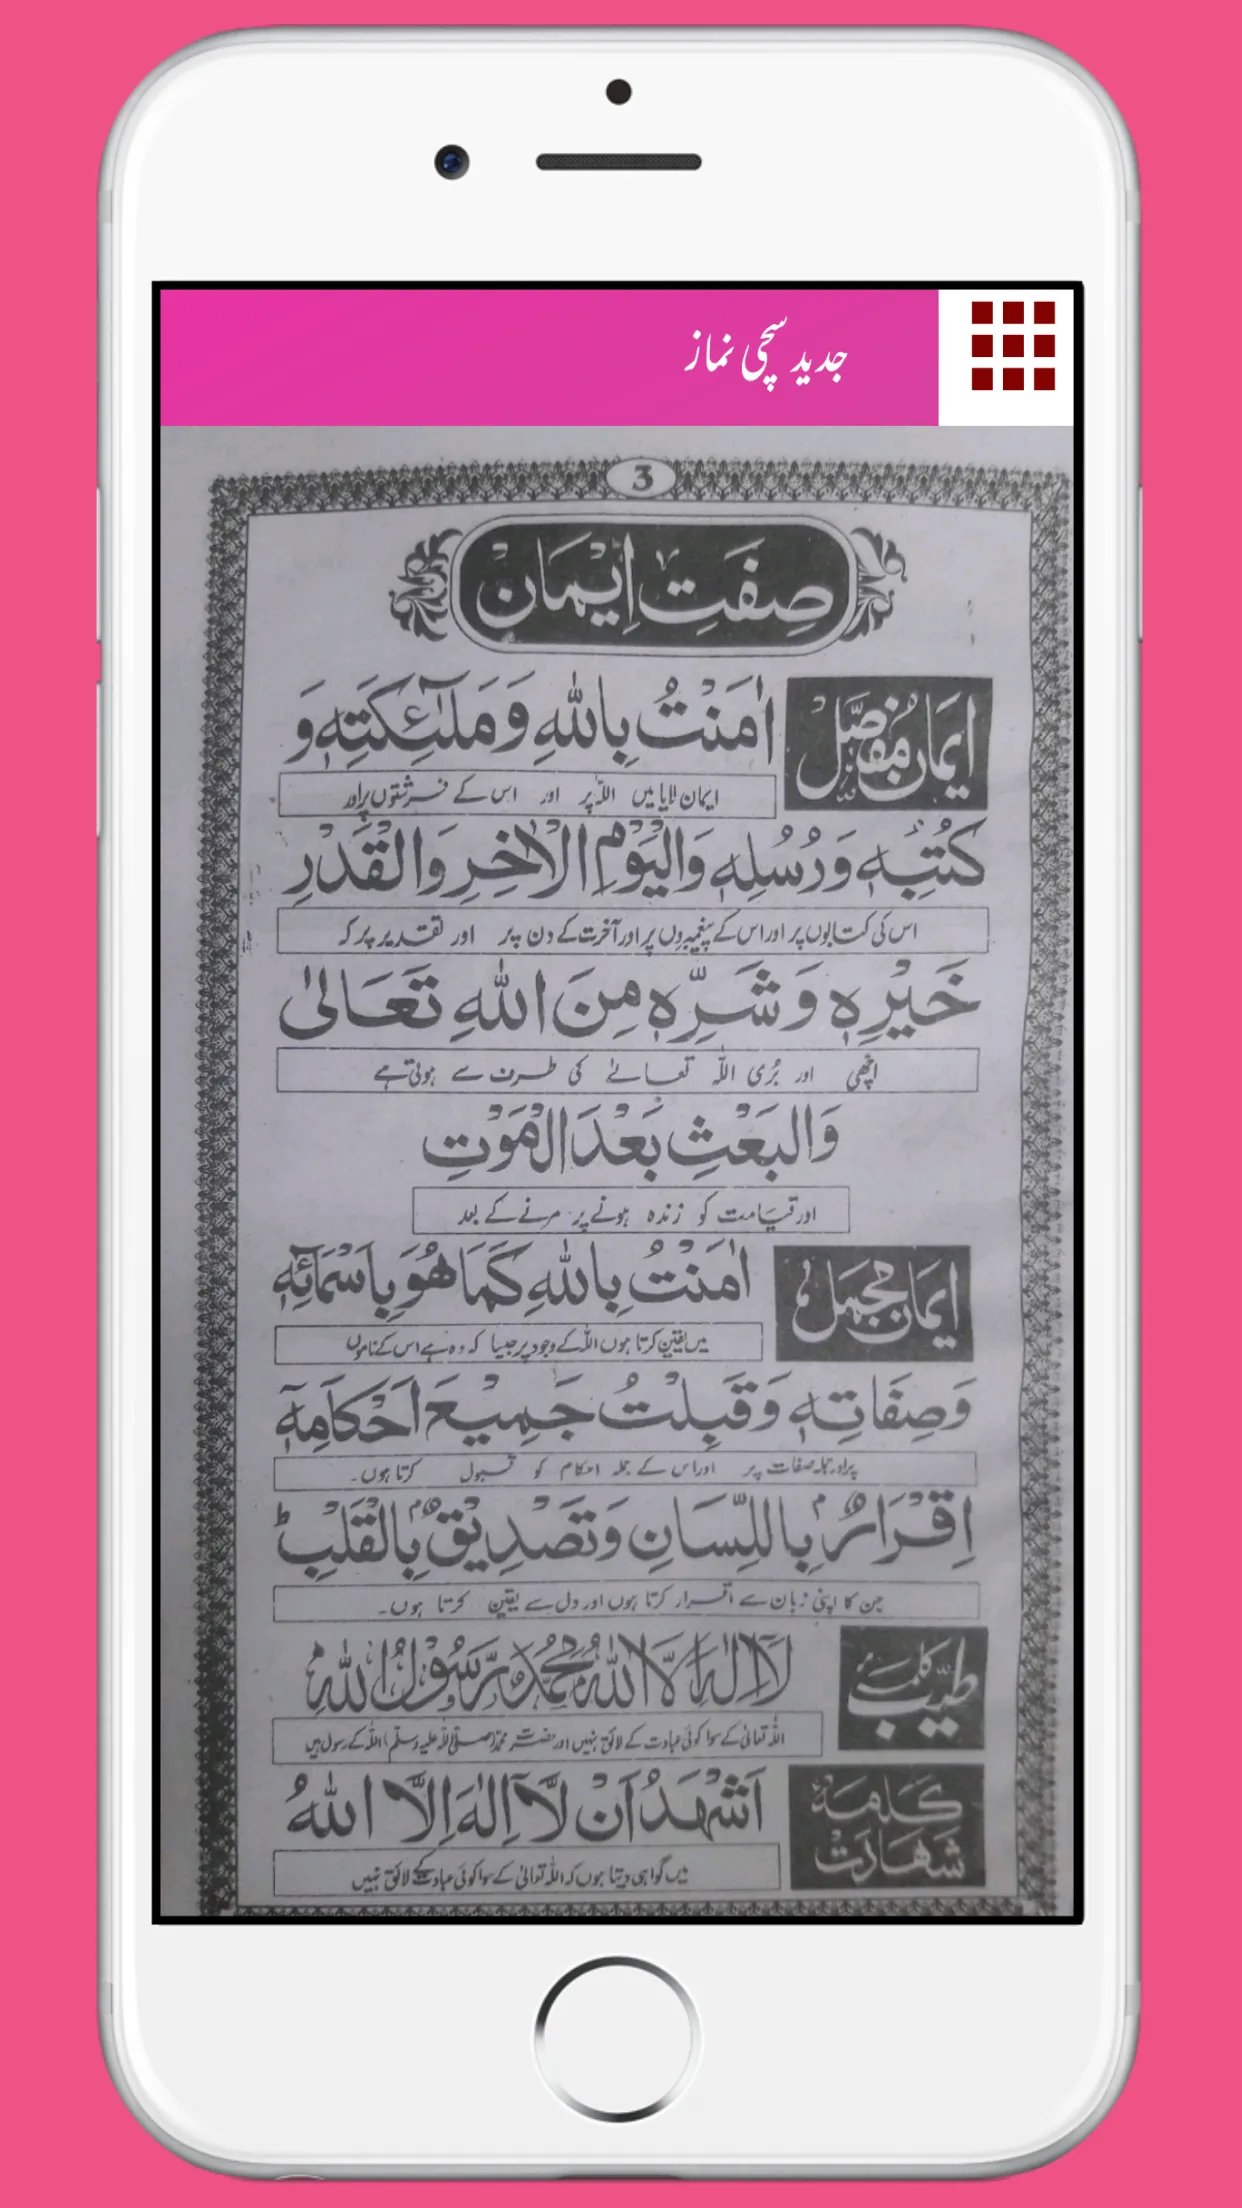 جدید سچی نماز
3
صِفَتِ اِیْمَان
ایمان مُفصَّلْ
اٰمَنْتُ بِاللّٰهِ وَ مَلٰٓئِكَتِهٖ وَ
ایمان لایا میں اللہ پر اور اس کے فرشتوں پر اور
كُتُبِهٖ وَ رُسُلِهٖ وَالْیَوْمِ الْاٰخِرِ وَالْقَدْرِ
اس کی کتابوں پر اور اس کے پیغمبروں پر اور آخرت کے دن پر اور تقدیر پر کہ
خَیْرِهٖ وَ شَرِّهٖ مِنَ اللّٰهِ تَعَالٰی
اچھی اور بُری اللہ تعالےٰ کی طرف سے ہوتی ہے
وَالبَعْثِ بَعْدَ الْمَوْتِ
اور قیامت کو زندہ ہونے پر مرنے کے بعد
ایمان مجمل
اٰمَنْتُ بِاللّٰهِ كَمَا هُوَ بِاَسْمَآئِهٖ
میں یقین کرتا ہوں اللہ کے وجود پر جیسا کہ وہ ہے اس کے ناموں
وَصِفَاتِهٖ وَقَبِلْتُ جَمِیْعَ اَحْكَامِهٖٓ
پر اور جملہ صفات پر اور اس کے جملہ احکام کو قبول کرتا ہوں۔
اِقْرَارٌۢ بِاللِّسَانِ وَتَصْدِیْقٌۢ بِالْقَلْبِؕ
جن کا اپنی زبان سے اقرار کرتا ہوں اور دل سے یقین کرتا ہوں۔
کلمہٴ طیّب
لَآ اِلٰهَ اِلَّا اللّٰهُ مُحَمَّدٌ رَّسُوْلُ اللّٰهِ
اللہ تعالیٰ کے سوا کوئی عبادت کے لائق نہیں اور حضرت محمد (صلی اللہ علیہ وسلم) اللہ کے رسول ہیں
كلمهٔ شهادتْ
اَشْهَدُ اَنْ لَّآ اِلٰهَ اِلَّا اللّٰهُ
میں گواہی دیتا ہوں کہ اللہ تعالیٰ کے سوا کوئی عبادت کے لائق نہیں